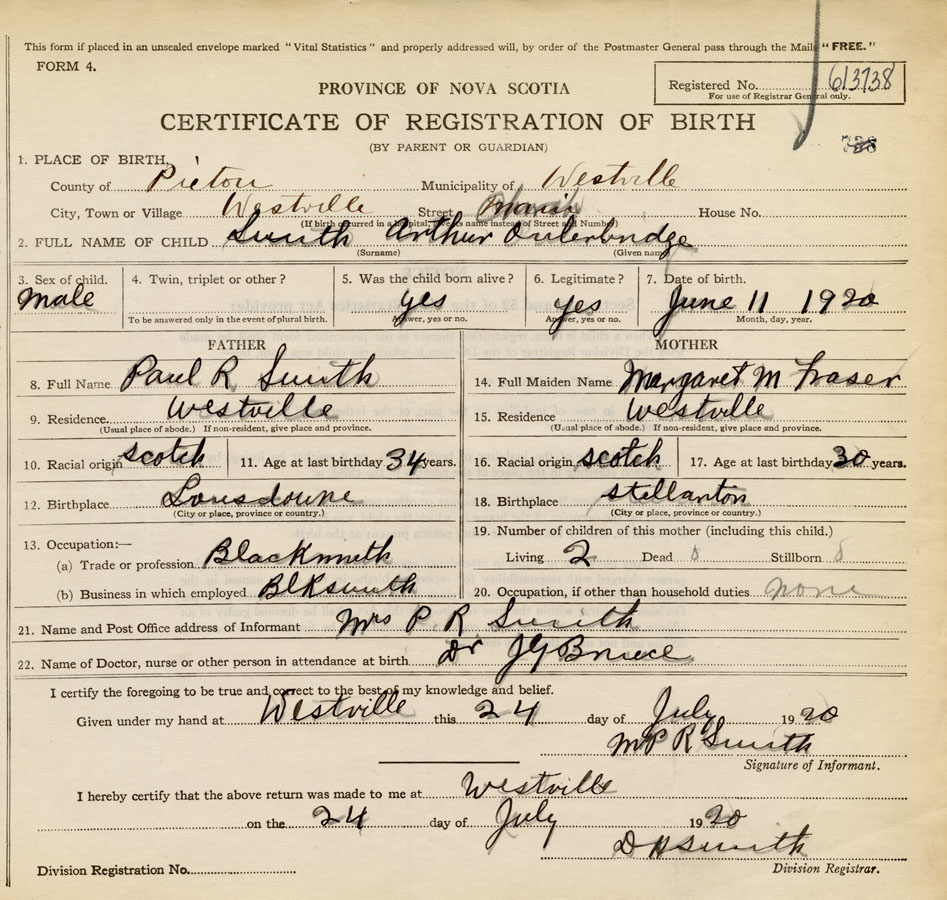 This form if placed in an unsealed envelope marked "Vital Statistics" and properly addressed will, by order of the Postmaster General pass through the Mails "FREE."
FORM 4.
Registered No. 613738
For use of Registrar General only.
PROVINCE OF NOVA SCOTIA
CERTIFICATE OF REGISTRATION OF BIRTH
(BY PARENT OR GUARDIAN)
1. PLACE OF BIRTH,
County of Pictou Municipality of Westville
City, Town or Village Westville Street House No.
(If birth occurred in a hospital, give its name instead of Street and Number)
2. FULL NAME OF CHILD Smith Arthur Outerbridge
(Surname) (Given name)
3. Sex of child. 4. Twin, triplet or other? 5. Was the child born alive? 6. Legitimate? 7. Date of birth.
Male yes yes June 11 1920
To be answered only in the event of plural birth. Answer, yes or no. Answer, yes or no. Month, day, year.
FATHER MOTHER
8. Full Name Paul R Smith 14. Full Maiden Name Margaret M Fraser
9. Residence Westville 15. Residence Westville
(Usual place of abode.) If non-resident, give place and province. (Usual place of abode.) If non-resident, give place and province.
10. Racial origin scotch 11. Age at last birthday 34 years. 16. Racial origin scotch 17. Age at last birthday 30 years.
12. Birthplace Lonsdowne 18. Birthplace stellarton
(City or place, province or country.) (City or place, province or country.)
13. Occupation:— 19. Number of children of this mother (including this child.)
(a) Trade or profession Blacksmith Living 2 Dead 0 Stillborn 0
(b) Business in which employed Blksmith 20. Occupation, if other than household duties none
21. Name and Post Office address of Informant Mrs P R Smith
22. Name of Doctor, nurse or other person in attendance at birth Dr J G Bruce
I certify the foregoing to be true and correct to the best of my knowledge and belief.
Given under my hand at Westville this 24 day of July 1920
P R Smith
Signature of Informant.
I hereby certify that the above return was made to me at Westville
on the 24 day of July 1920
D H Smith
Division Registration No. Division Registrar.